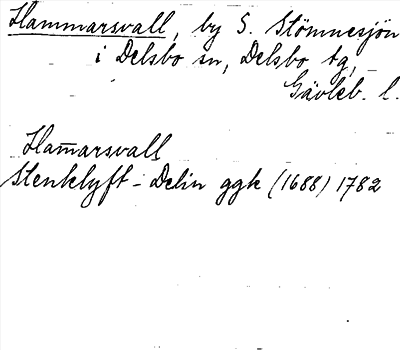 Hammarsvall, by S. Stömnesjön
i Delsbo sn, Delsbo tg,
Gävleb. l.
Ham̄arsvall
Stenklyft - Delin ggk (1688) 1782